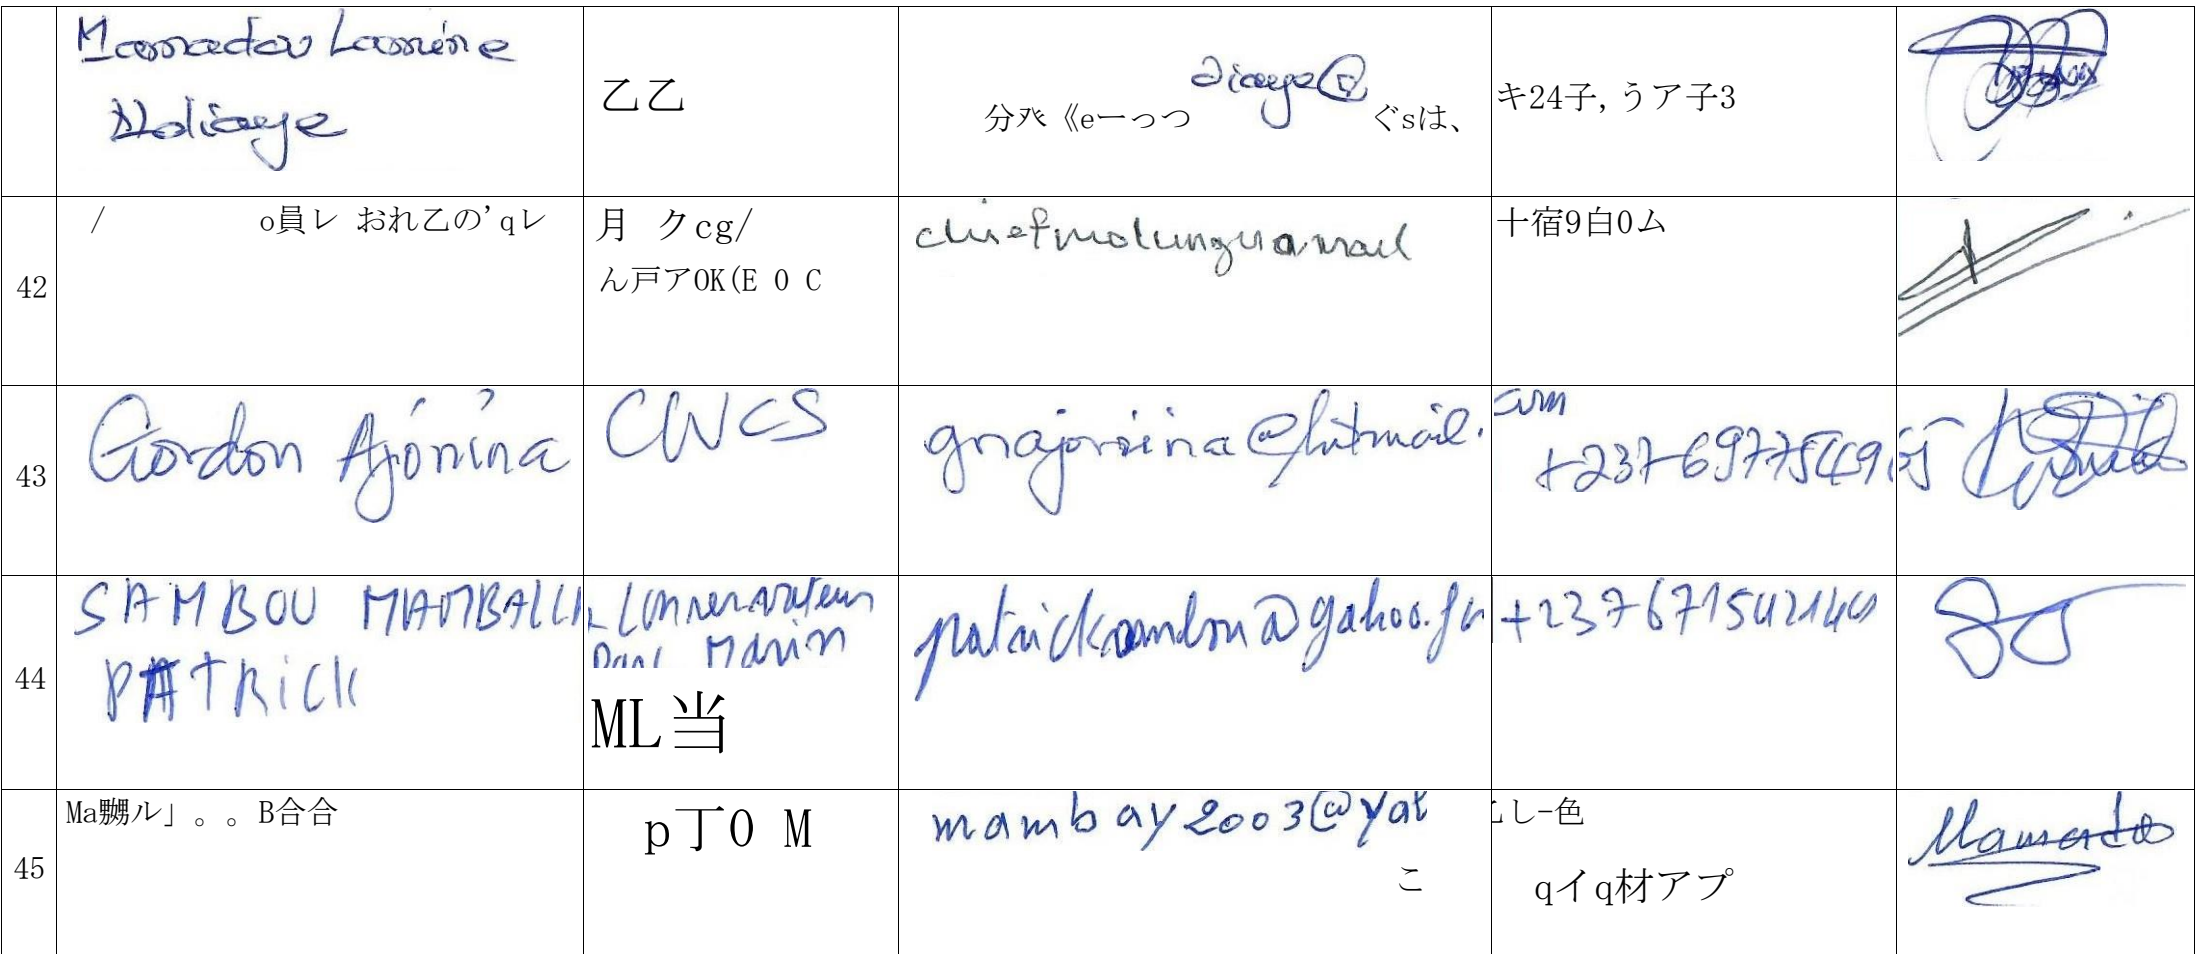 Mamadou Lamine
Ndiaye
乙乙
diaye@
分癶《eーっつ
ぐsは、
キ24子,うア子3
42
/ o員レ おれ乙の'qレ
月 クcg/
ん戸アOK(E 0 C
chiefmolungnamail
十宿9白0ム
43
Gordon Ajonina
CWCS
gnajonina@hotmail.
com
+237697754965
44
SAMBOU MAMBALLA
PATRICK
Conservateur
Parc Marin
ML当
patricksambou@yahoo.fr
+237671542144
45
Ma嬲ル」。。B合合
p丁0 M
mambay2003@yah
こ
乙し-色
qイq材アプ
Mamado